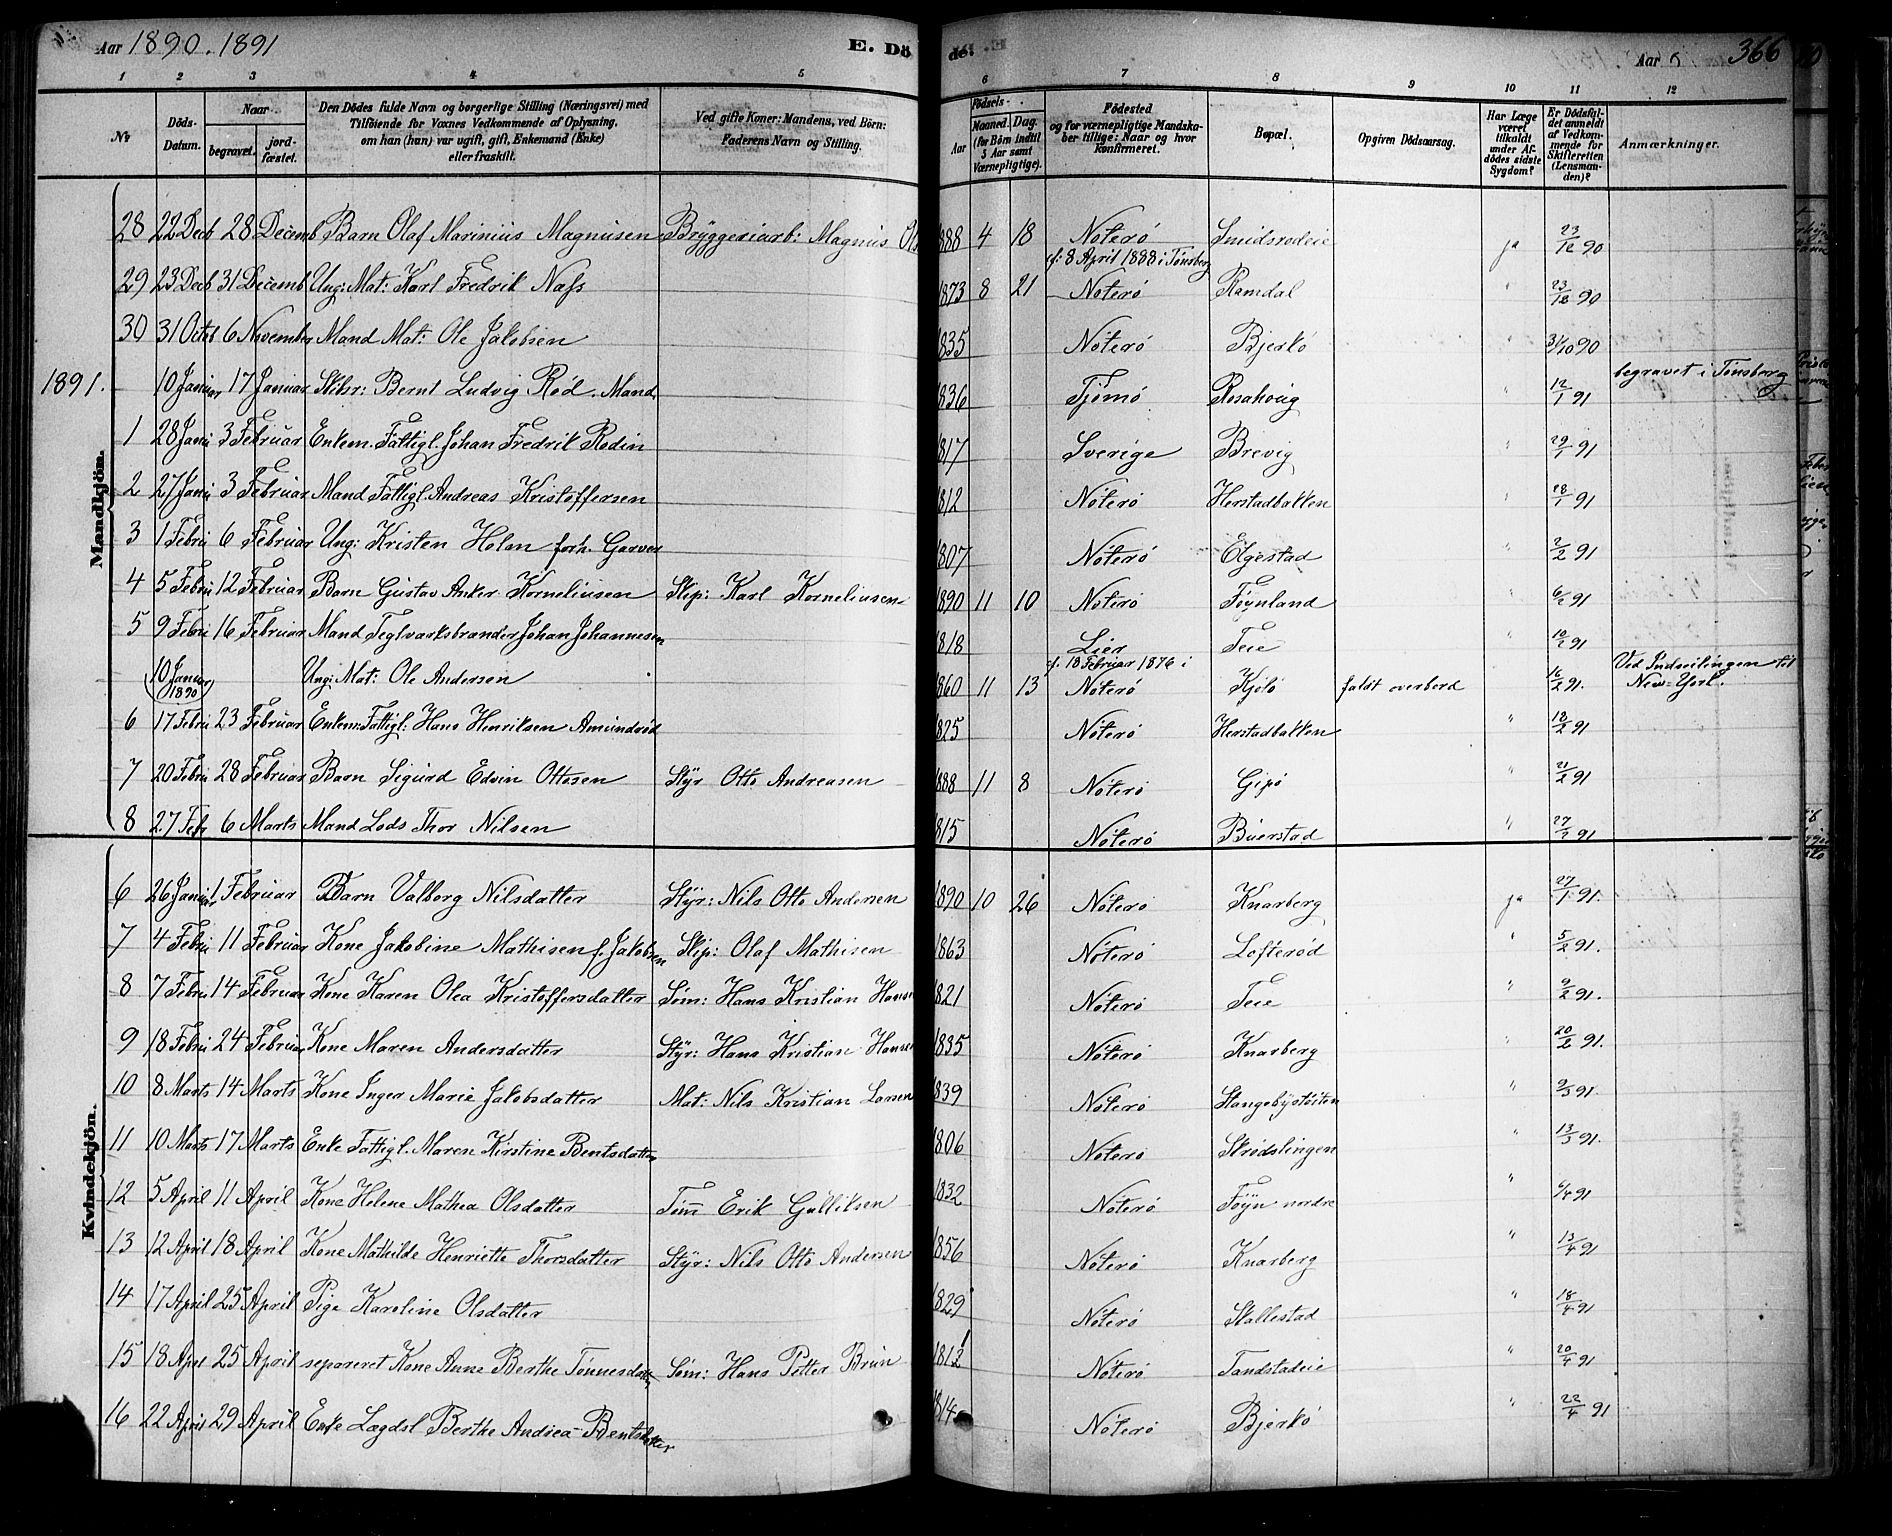 Aar 1890. 1891
E. Dö
de.
Aar
366
1 2 3 4 5 6 7 8 9 10 11 12
No
Döds-Datum.
Naar
begravet.
jord-fæstet.
Den Dödes fulde Navn og borgerlige Stilling (Næringsvei) med
Tilföiende for Voxnes Vedkommende af Oplysning,
om han (hun) var ugift, gift, Enkemand (Enke)
eller fraskilt.
Ved gifte Koner: Mandens, ved Börn:
Faderens Navn og Stilling.
Födsels-
Aar
Maaned. Dag.
(for Börn indtil
5 Aar samt
Værnepligtige).
Födested
og for værnepligtige Mandska-
ber tillige: Naar og hvor
konfirmeret.
Bopæl.
Opgiven Dödsaarsag.
Har Læge
været
tilkaldt
under Af-
dödes sidste
Sygdom?
Er Dödsfal-
det anmeldt
af Vedkom-
mende for
Skifteretten
(Lensman-
den)?
Anmærkninger.
28 22 Decb 28 Decemb Barn Olaf Marinius Magnusen Bryggeriarb: Magnus 1888 4 18 Nøterø Smidsrødeie ja 23/12 90
29 23 Decb 31 Decemb Ung: Mat: Karl Fredrik Næss 1873 8 21 cf: 8 April 1888 i Tønsberg Nøterø Ramdal " 23/12 90
30 31 Octob 6 November Mand Mat: Ole Jakobsen 1835 Nøterø Bjerkø " 31/10 90
1891. 10 Januar 17 Januar Skibsr: Bernt Ludvig Rød. Mand 1836 Tjømø Rosahoug " 12/1 91 begravet i Tønsberg
Mandkjön.
1 28 Janu 3 Februar Enkem. Fattigl. Johan Fredrik Rodin 1817 Sverige Brevig " 29/1 91
2 27 Janu 3 Februar Mand Fattigl. Andreas Kristoffersen 1812 Nøterø Herstadbakken " 28/1 91
3 1 Febru 6 Februar Ung: Kristen Holm forh. Garver 1807 Nøterø Elgestad " 2/2 91
4 5 Febru 12 Februar Barn Gustav Anker Korneliusen Skip: Karl Korneliusen 1890 11 10 Nøterø Føynland " 6/2 91
5 9 Febru 16 Februar Mand Teglværksbrænder Johan Johannesen 1818 Lier Teie " 10/2 91
10 Januar (1890) Ung: Mat: Ole Andersen 1860 11 13 cf. 18 Februar 1876 i Nøterø Kjøló faldt overbord " 16/2 91. Ved Indseilingen til New=York.
6 17 Febru 23 Februar Enkem: Fattigl: Hans Henriksen Amundrød 1825 Nøterø Herstadbakken " 18/2 91
7 20 Febru 28 Februar Barn Sigurd Edvin Ottosen Styr Otto Andreasen 1888 11 8 Nøterø Gipø " 21/2 91
8 27 Febr 6 Marts Mand Lods Thor Nilsen 1815 Nøterø Buerstad " 27/2 91
Kvindekjön.
6 26 Januar 1 Februar Barn Valborg Nilsdatter Styr: Nils Otto Andersen 1890 10 26 Nøterø Knarberg ja 27/1 91.
7 4 Febru 11 Februar Kone Jakobine Mathisen f. Jakobsen Skip: Olaf Mathisen 1863 Nøterø Lofterød " 5/2 91.
8 7 Febru 14 Februar Kone Karen Olea Kristoffersdatter Søm: Hans Kristian Hansen 1821 Nøterø Teie " 9/2 91.
9 18 Febru 24 Februar Kone Maren Andersdatter Styr: Hans Kristian Hansen 1835 Nøterø Knarberg " 20/2 91.
10 8 Marts 14 Marts Kone Inger Marie Jakobsdatter Mat: Nils Kristian Larsen 1839 Nøterø Stangebystøiten " 9/3 91.
11 10 Marts 17 Marts Enke Fattigl. Maren Kirstine Bentsdatter 1806 Nøterø Skrødslingen " 13/3 91.
12 5 April 11 April Kone Helene Mathea Olsdatter Tøm Erik Gulliksen 1832 Nøterø Føyn nordre " 6/4 91
13 12 April 18 April Kone Mathilde Henriette Thorsdatter Styr: Nils Otto Andersen 1856 Nøterø Knarberg " 13/4 91
14 17 April 25 April Pige Karoline Olsdatter 1829 Nøterø Skallestad " 18/4 91
15 18 Apri 25 April separeret Kone Anne Berthe Tønnesdatter Søm: Hans Petter Brun 1812 Nøterø Tandstadeie " 20/4 91
16 22 April 29 April Enke Lægdsl Berthe Andrea Bentsdatter 1814 Nøterø Bjerkø " 22/4 91